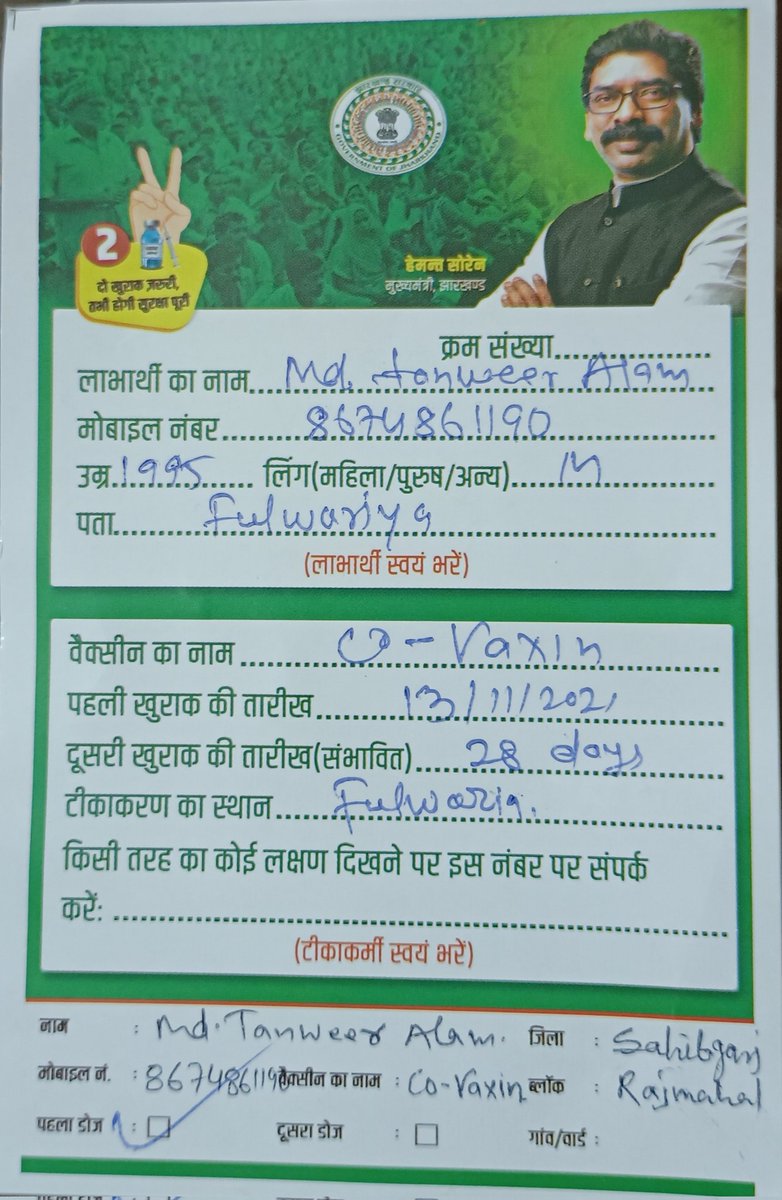 झारखण्ड सरकार
GOVERNMENT OF JHARKHAND
2
दो खुराक ज़रुरी,
तभी होगी सुरक्षा पूरी
हेमन्त सोरेन
मुख्यमंत्री, झारखण्ड
क्रम संख्या....................
लाभार्थी का नाम.... Md. tanweer Alam
मोबाइल नंबर.......... 8674861190
उम्र. 1995 ...... लिंग(महिला/पुरुष/अन्य)...... M
पता.......... Fulwariya
(लाभार्थी स्वयं भरें)
वैक्सीन का नाम .......... Co-Vaxin
पहली खुराक की तारीख.......... 13/11/2021
दूसरी खुराक की तारीख(संभावित)...... 28 days
टीकाकरण का स्थान...... Fulwaria.
किसी तरह का कोई लक्षण दिखने पर इस नंबर पर संपर्क
करें: ....................
(टीकाकर्मी स्वयं भरें)
नाम : Md. Tanweer Alam. जिला : Sahibganj
मोबाइल नं. : 8674861190 वैक्सीन का नाम : Co-Vaxin ब्लॉक : Rajmahal
पहला डोज : दूसरा डोज : गांव/वार्ड :